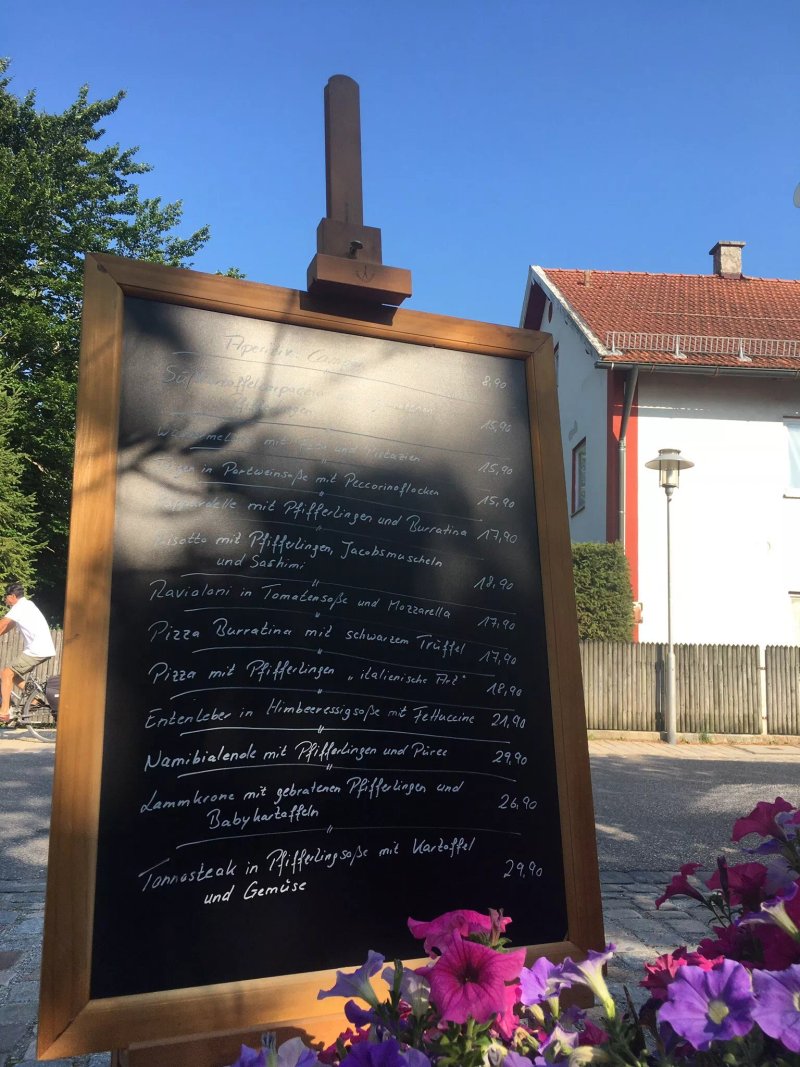 Aperitiv: 8,90
15,90
mit und Pistazien 15,90
in Portweinsoße mit Peccorinoflocken 15,90
mit Pfifferlingen und Burratina 17,90
Risotto mit Pfifferlingen, Jacobsmuscheln
und Sashimi 18,90
Ravioloni in Tomatensoße und Mozzarella 17,90
Pizza Burratina mit schwarzem Trüffel 17,90
Pizza mit Pfifferlingen „italienische Art" 18,90
Entenleber in Himbeeressigsoße mit Fettuccine 21,90
Namibialende mit Pfifferlingen und Püree 29,90
Lammkrone mit gebratenen Pfifferlingen und
Babykartoffeln 26,90
Tonnosteak in Pfifferlingsoße mit Kartoffel
und Gemüse 29,90